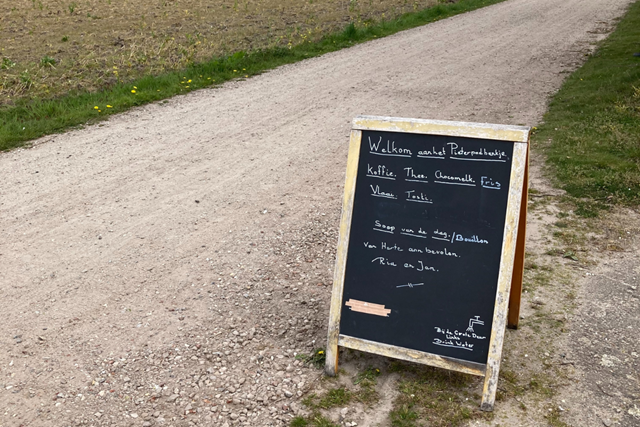 Welkom aan het Pieterpadbenkje.
Koffie. Thee. Chocomelk. Fris
Vlaai. Tosti.
Soep van de dag./Bouillon
van Harte aanbevolen.
Ria en Jan.
Bij de Grote Deur
Links
Drink Water